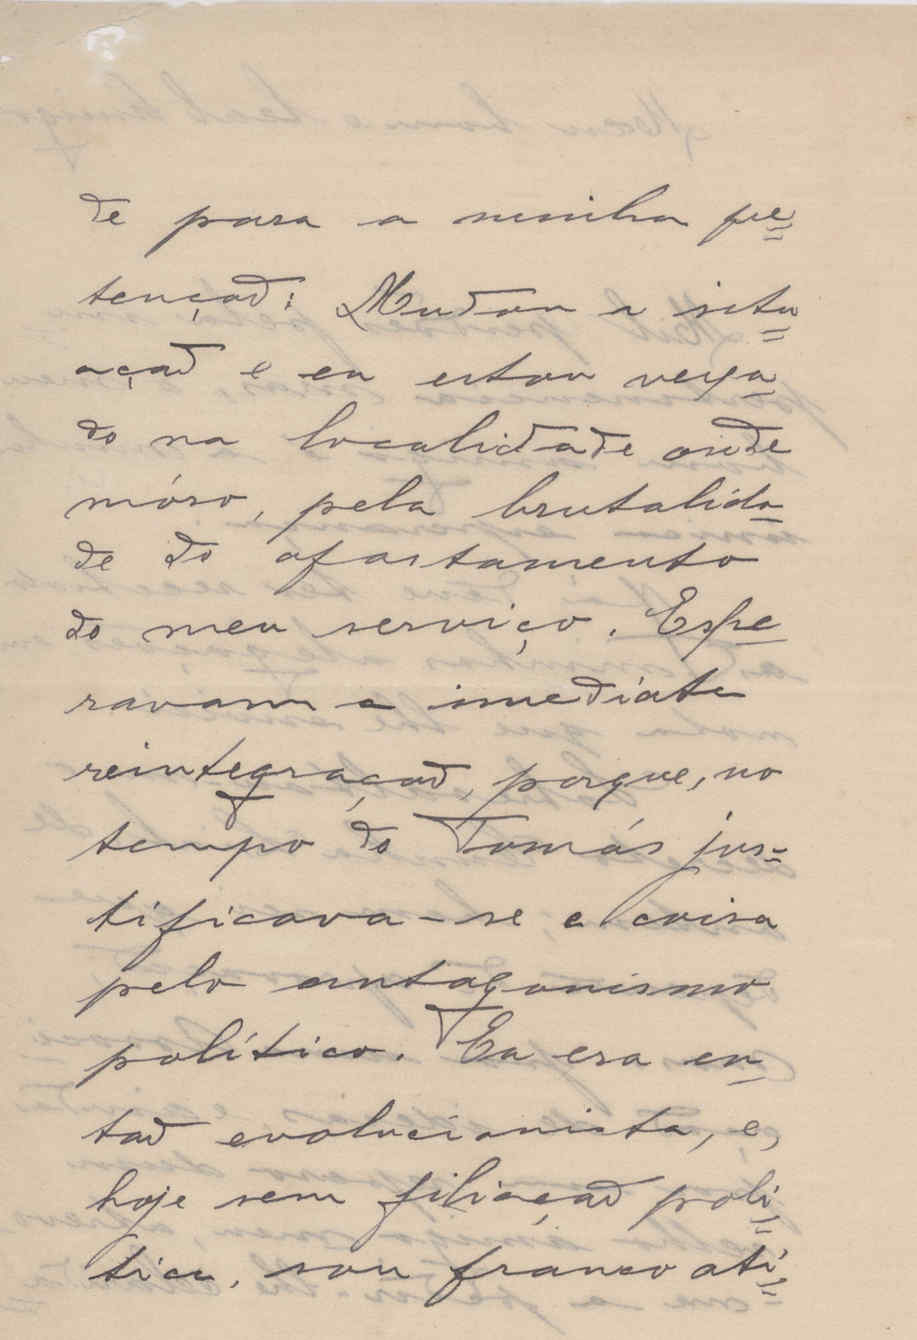 de para a minha pre=
tenção: Mudou a situ=
ação e eu estou vexa=
do na localidade onde
móro, pela brutalida-
de do afastamento
do meu serviço. Espe-
ravam a imediata
reintegração, porque, no
tempo do Tomás jus=
tificava-se a coisa
pelo antagonismo
político. Eu era en-
tão evolucionista, e,
hoje sem filiação poli=
tica, sou franco ati=